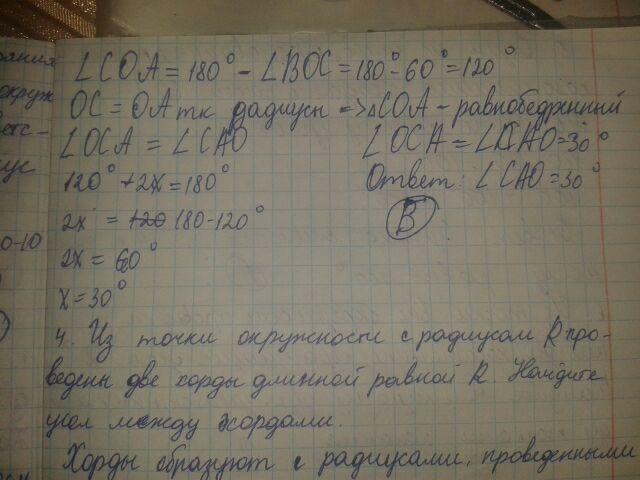 ояния
окруж
ветс-
ус
0-10
∠COA = 180° - ∠BOC = 180° - 60° = 120°
OC = OA тк радиусы => △COA - равнобедренный
∠OCA = ∠CAO
∠OCA = ∠CAO = 30°
120° + 2x = 180°
Ответ: ∠CAO = 30°
2x = 120 180 - 120°
В
2x = 60°
x = 30°
4. Из точки окружности с радиусом R про-
ведены две хорды длинной равной R. Найдите
угол между хордами.
Хорды образуют с радиусами, проведенными